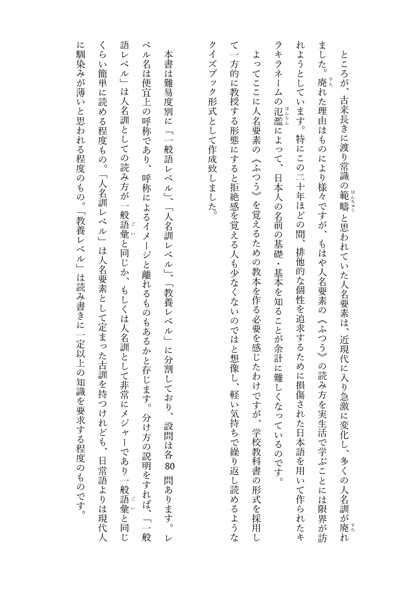 ところが、古来長きに渡り常識の範疇と思われていた人名要素は、近現代に入り急激に変化し、多くの人名訓が廃れ
ました。廃れた理由はものにより様々ですが、もはや人名要素の《ふつう》の読み方を実生活で学ぶことには限界が訪
れようとしています。特にこの二十年ほどの間、排他的な個性を追求するために損傷された日本語を用いて作られたキ
ラキラネームの氾濫によって、日本人の名前の基礎・基本を知ることが余計に難しくなっているのです。
よってここに人名要素の《ふつう》を覚えるための教本を作る必要を感じたわけですが、学校教科書の形式を採用し
て一方的に教授する形態にすると拒絶感を覚える人も少なくないのではと想像し、軽い気持ちで繰り返し読めるような
クイズブック形式として作成致しました。
本書は難易度別に「一般語レベル」、「人名訓レベル」、「教養レベル」に分割しており、設問は各80問あります。レ
ベル名は便宜上の呼称であり、呼称によるイメージと離れるものもあるかと存じます。分け方の説明をすれば、「一般
語レベル」は人名訓としての読み方が一般語彙と同じか、もしくは人名訓として非常にメジャーであり一般語彙と同じ
くらい簡単に読める程度もの。「人名訓レベル」は人名要素として定まった古訓を持つけれども、日常語よりは現代人
に馴染みが薄いと思われる程度のもの。「教養レベル」は読み書きに一定以上の知識を要求する程度のものです。